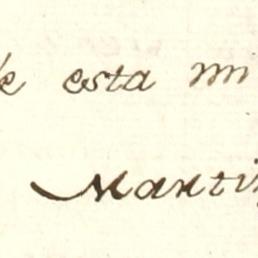 de esta mi
Martin